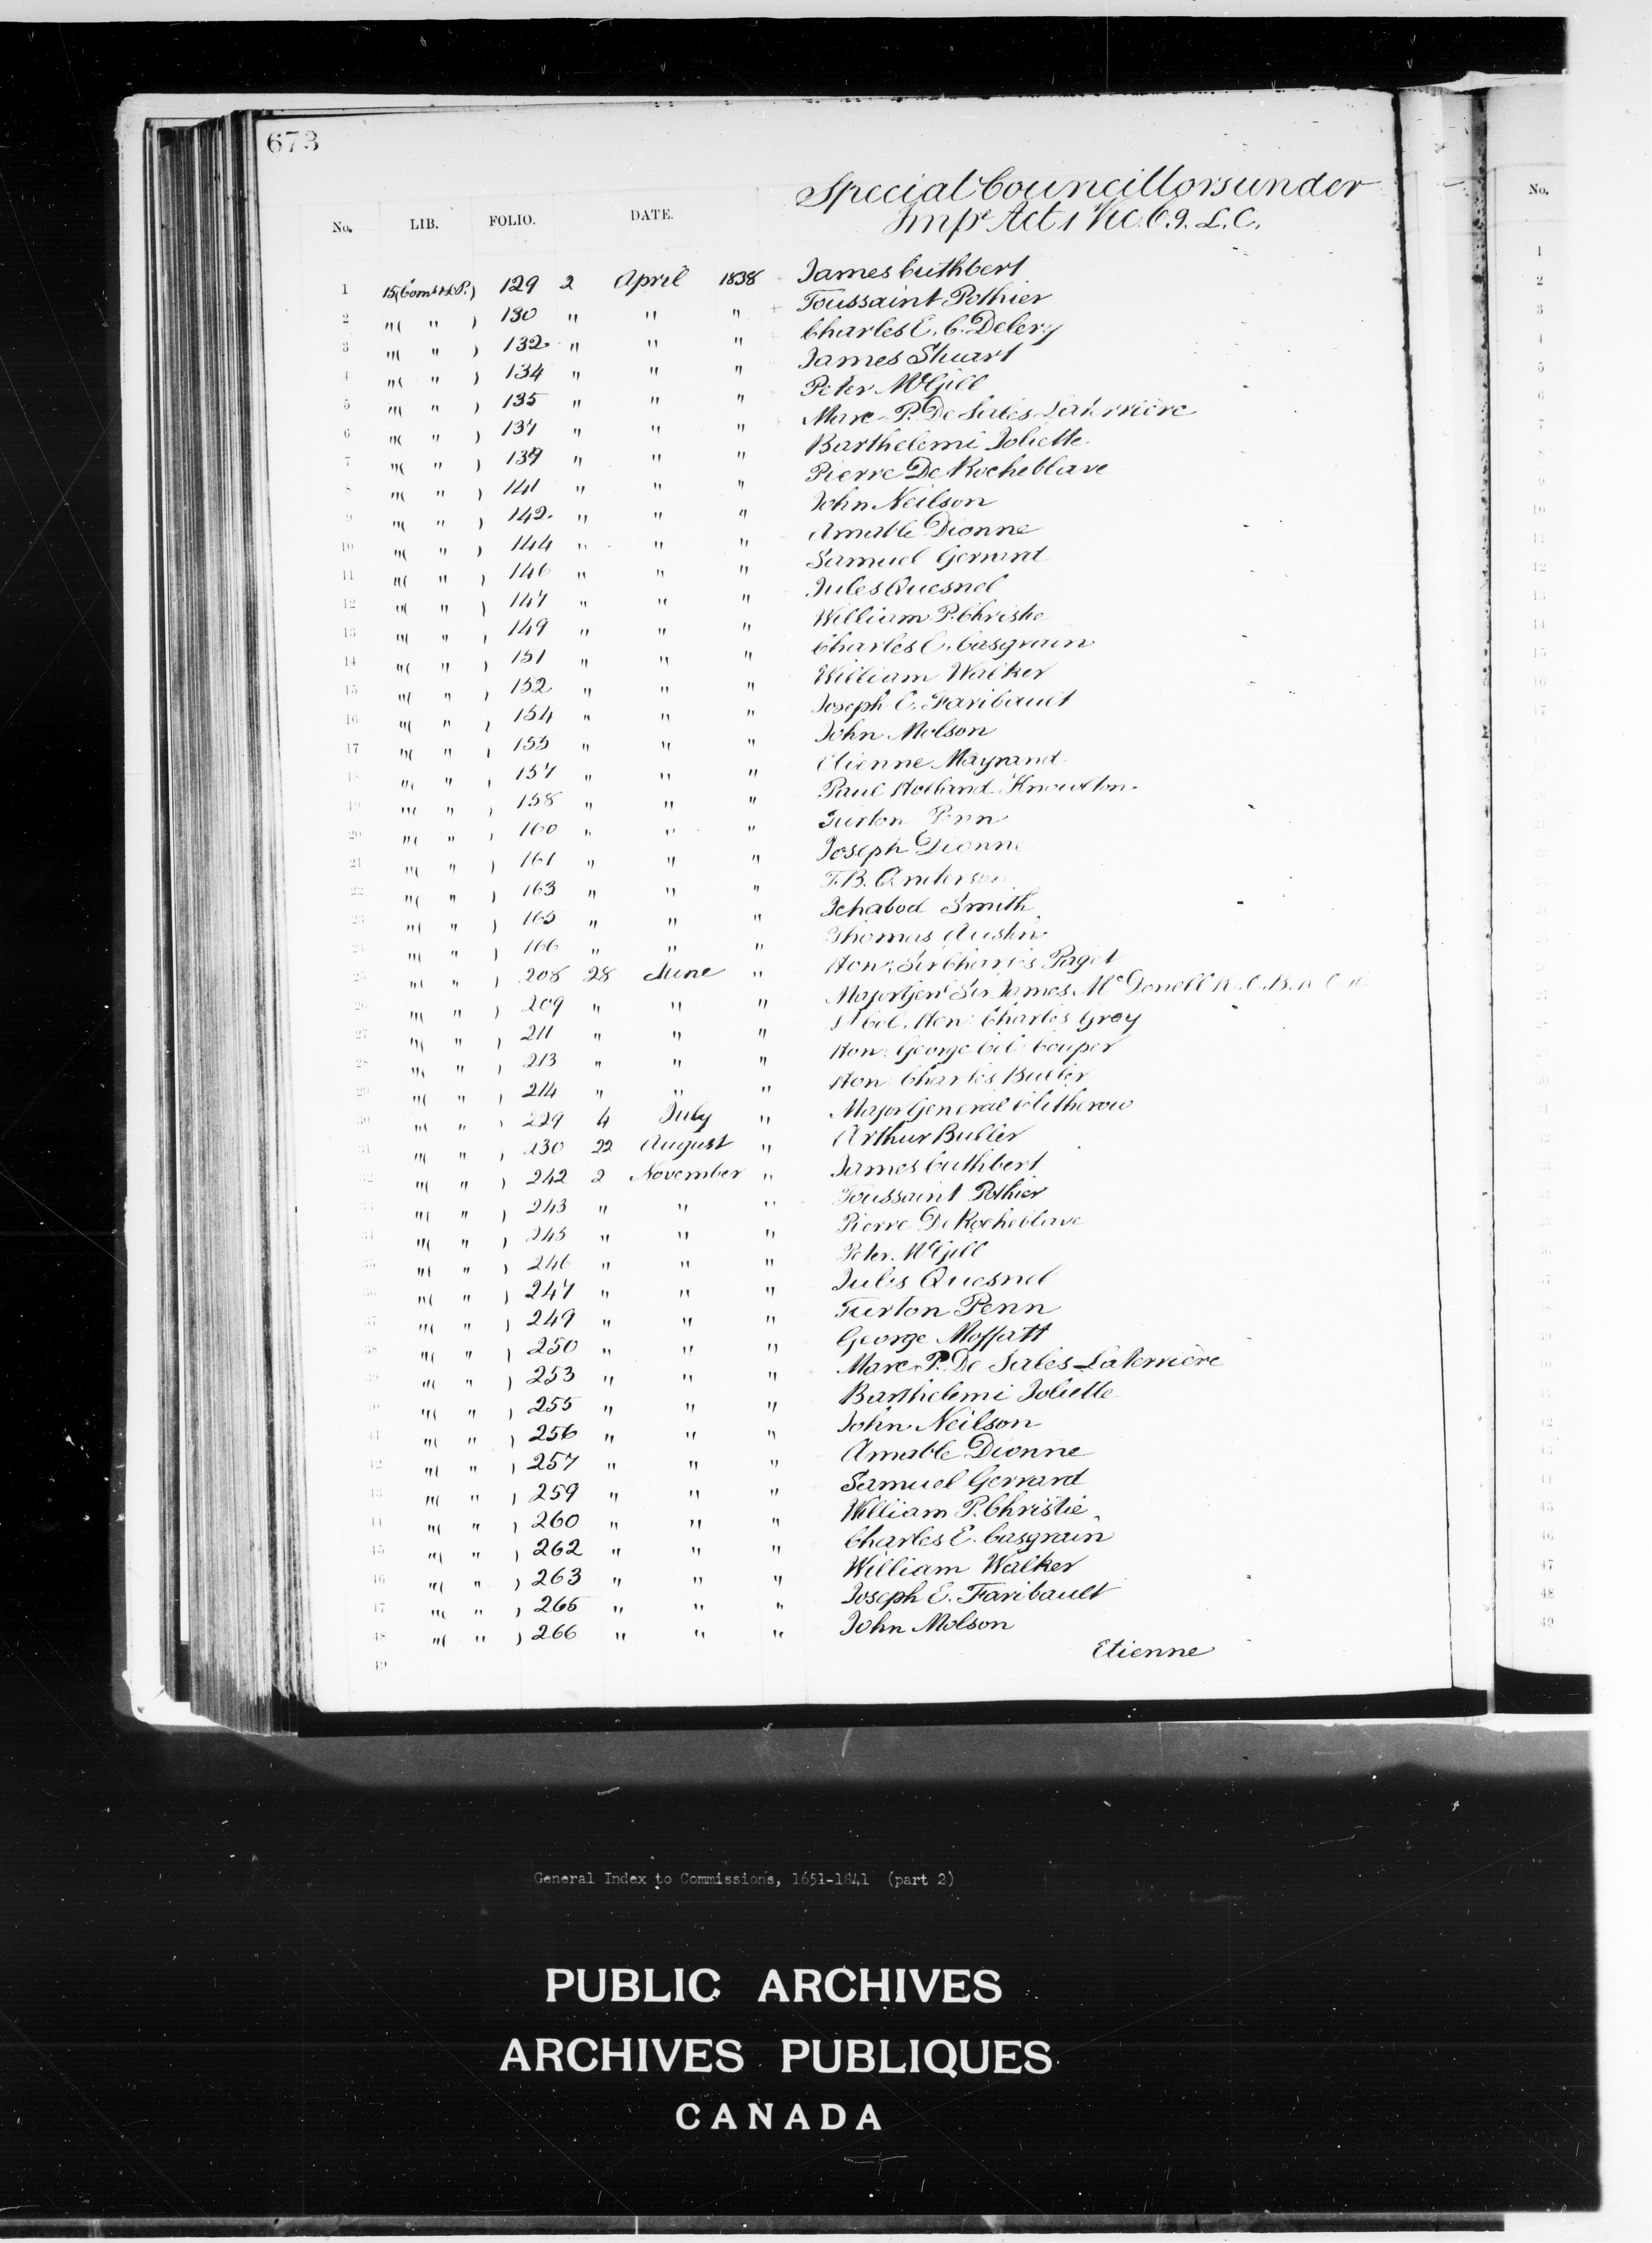 673
Special Councillors under
Impl Act 1 Vic. C. 9. L. C.
No. LIB. FOLIO. DATE. No.
1 15(Coms & L.P.) 129 2 April 1838 James Cuthbert
2 "( " ) 130 " " " Toussaint Pothier
3 "( " ) 132 " " " Charles E. C. Delery
4 "( " ) 134 " " " James Stuart
5 "( " ) 135 " " " Peter McGill
6 "( " ) 137 " " " Marc P. De Sales Laterrière
7 "( " ) 139 " " " Barthelemi Joliette
8 "( " ) 141 " " " Pierre De Rocheblave
9 "( " ) 142 " " " John Neilson
10 "( " ) 144 " " " Amable Dionne
11 "( " ) 146 " " " Samuel Gerrard
12 "( " ) 147 " " " Jules Quesnel
13 "( " ) 149 " " " William P. Christie
14 "( " ) 151 " " " Charles E. Casgrain
15 "( " ) 152 " " " William Walker
16 "( " ) 154 " " " Joseph E. Faribault
17 "( " ) 155 " " " John Molson
18 "( " ) 157 " " " Etienne Mayrand
19 "( " ) 158 " " " Paul Holland Knowlton.
20 "( " ) 160 " " " Turton Penn
21 "( " ) 161 " " " Joseph Dionne
22 "( " ) 163 " " " T. B. Anderson
23 "( " ) 165 " " " Ichabod Smith
24 "( " ) 166 " " " Thomas Austin
25 "( " ) 208 28 June " Hon: Sir Charles Paget
26 "( " ) 209 " " " Major Genl Sir James McDonell K.C.B.
27 "( " ) 211 " " " Lt Col. Hon: Charles Grey
28 "( " ) 213 " " " Hon: George Col: Couper
29 "( " ) 214 " " " Hon: Charles Buller
30 "( " ) 229 4 July " Major General Clitherow
31 "( " ) 230 22 August " Arthur Buller
32 "( " ) 242 2 November " James Cuthbert
33 "( " ) 243 " " " Toussaint Pothier
34 "( " ) 245 " " " Pierre De Rocheblave
35 "( " ) 246 " " " Peter McGill
36 "( " ) 247 " " " Jules Quesnel
37 "( " ) 249 " " " Turton Penn
38 "( " ) 250 " " " George Moffatt
39 "( " ) 253 " " " Marc P. De Sales Laterrière
40 "( " ) 255 " " " Barthelemi Joliette
41 "( " ) 256 " " " John Neilson
42 "( " ) 257 " " " Amable Dionne
43 "( " ) 259 " " " Samuel Gerrard
44 "( " ) 260 " " " William P. Christie
45 "( " ) 262 " " " Charles E. Casgrain
46 "( " ) 263 " " " William Walker
47 "( " ) 265 " " " Joseph E. Faribault
48 "( " ) 266 " " " John Molson
49 Etienne
General Index to Commissions, 1651-1841 (part 2)
PUBLIC ARCHIVES
ARCHIVES PUBLIQUES
CANADA